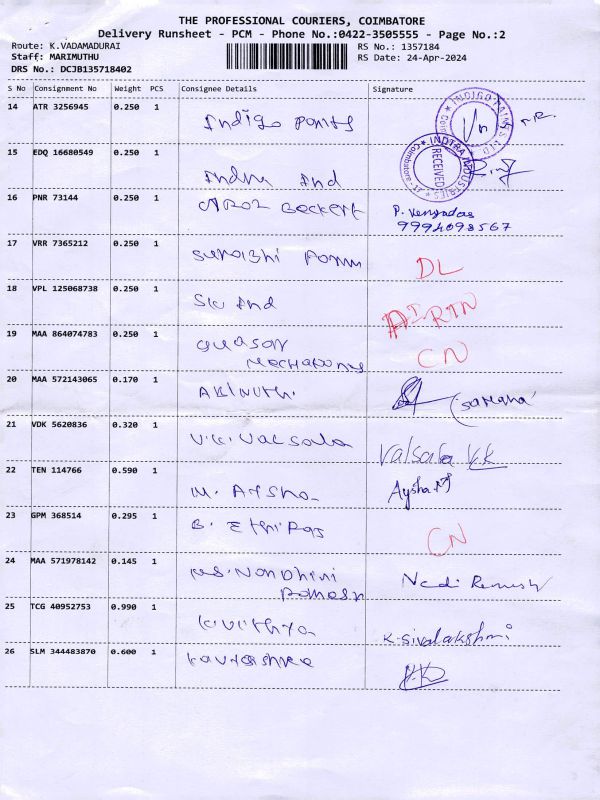 THE PROFESSIONAL COURIERS, COIMBATORE
Delivery Runsheet - PCM - Phone No.:0422-3505555 - Page No.:2
Route: K.VADAMADURAI
Staff: MARIMUTHU
DRS No.: DCJB135718402
RS No.: 1357184
RS Date: 24-Apr-2024
S No Consignment No Weight PCS Consignee Details Signature
14 ATR 3256945 0.250 1
Indigo Paints
15 EDQ 16680549 0.250 1
Indra Ind
INDTRA INDUSTRIES
RECEIVED
Coimbatore-17
16 PNR 73144 0.250 1 Beckert P. Venyadas
9994098567
17 VRR 7365212 0.250 1
DL
18 VPL 125068738 0.250 1
Ind
19 MAA 864074783 0.250 1
CN
20 MAA 572143065 0.170 1
21 VDK 5620836 0.320 1
V.K. Valsala Valsala V.K
22 TEN 114766 0.590 1
M. Aysha Aysha M
23 GPM 368514 0.295 1
B. Ethiraj CN
24 MAA 571978142 0.145 1
Nandhini
Ramesh
25 TCG 40952753 0.990 1
K.Sivalakshmi
26 SLM 344483870 0.600 1